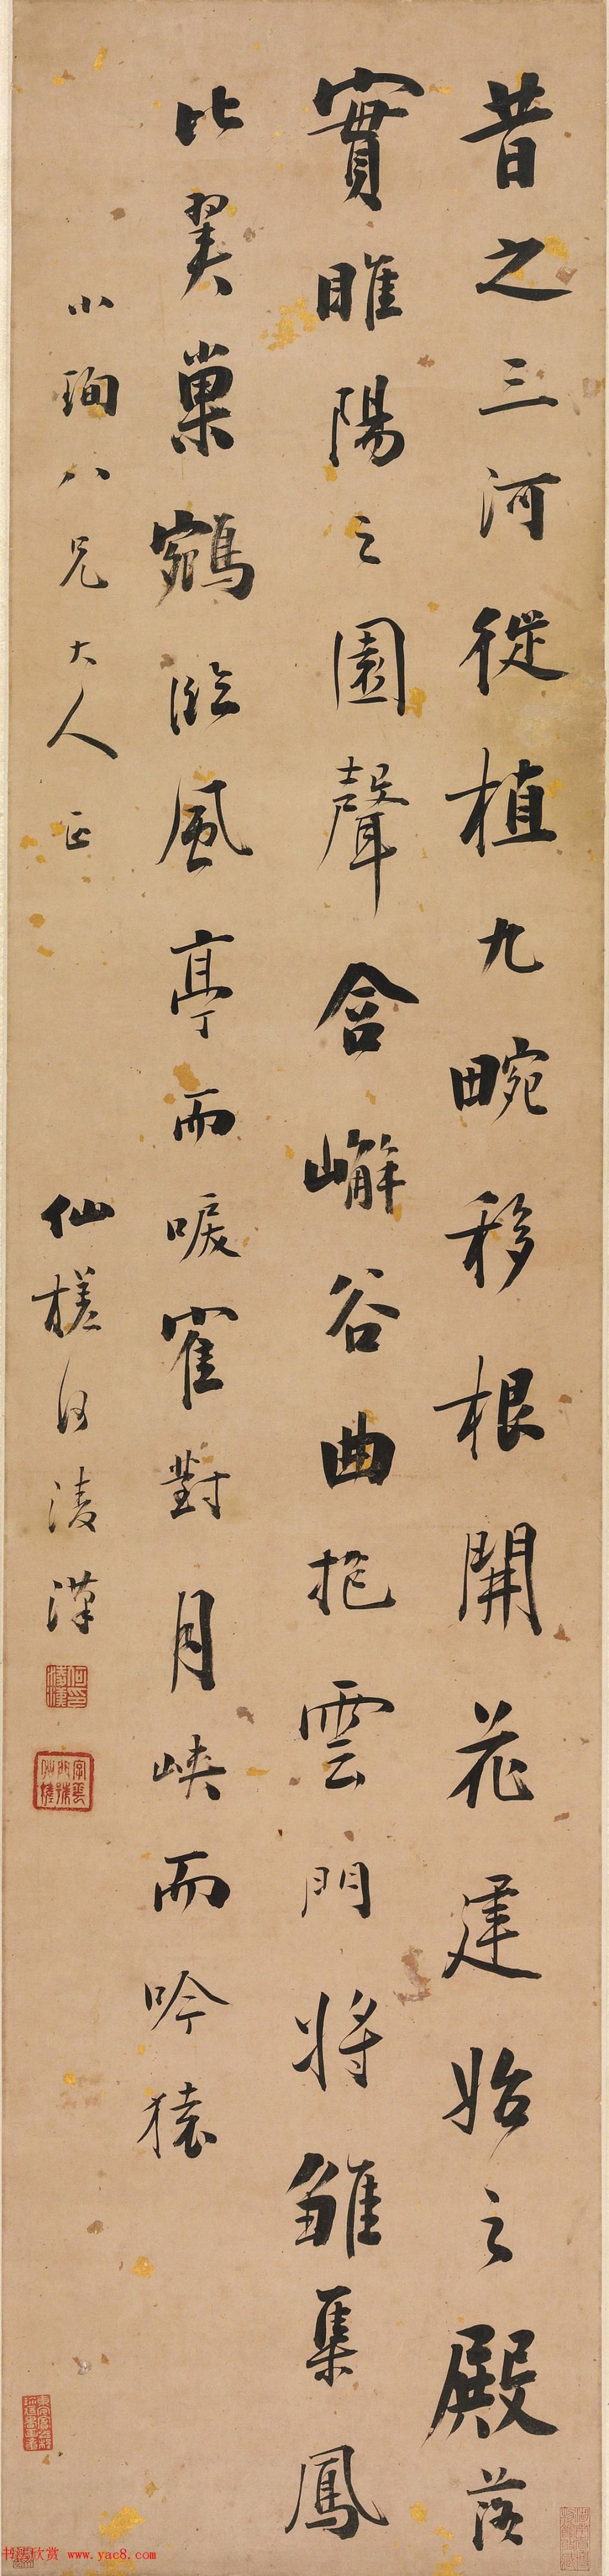 昔之三河徙植九畹移根開花建始之殿落
實睢陽之園聲含嶰谷曲抱雲門將雛集鳳
比翼巢鵷臨風亭而唳寉對月峽而吟猿
小珣八兄大人正
仙槎何淩漢
书法欣赏 www.yac8.com